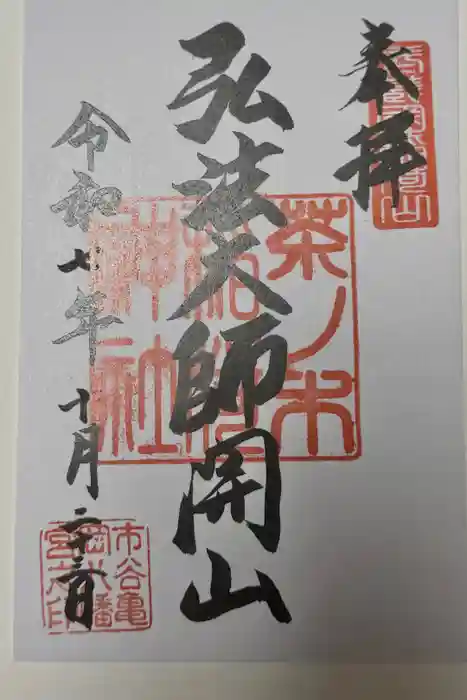 奉拝
弘法大師開山
茶ノ木
稲荷
神社
令和七年 十月 二十三日
市谷亀
岡八幡
宮之印